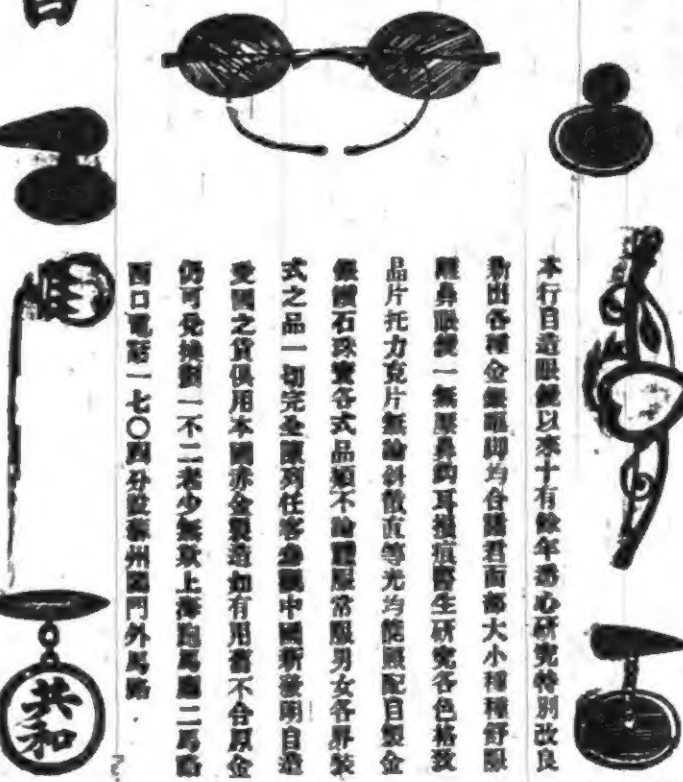 本行自造眼鏡以來十有餘年悉心研究特別改良
新出各種金銀單脚均合諸君面部大小種種舒服
壓鼻眼鏡一無壓鼻鈎耳損痕醫生研究各色格致
品片托力克片無論斜散直等光均能照配自製金
銀鑽石珠寶各式品類不論禮服常服男女各界裝
式之品一切完全陳列任客參觀中國新發明自造
愛國之貨俱用本國赤金製造如有用舊不合原金
仍可兌換劃一不二老少無欺上海跑馬廳二馬路
西口電話一七〇四分設蘇州閶門外馬路
共和